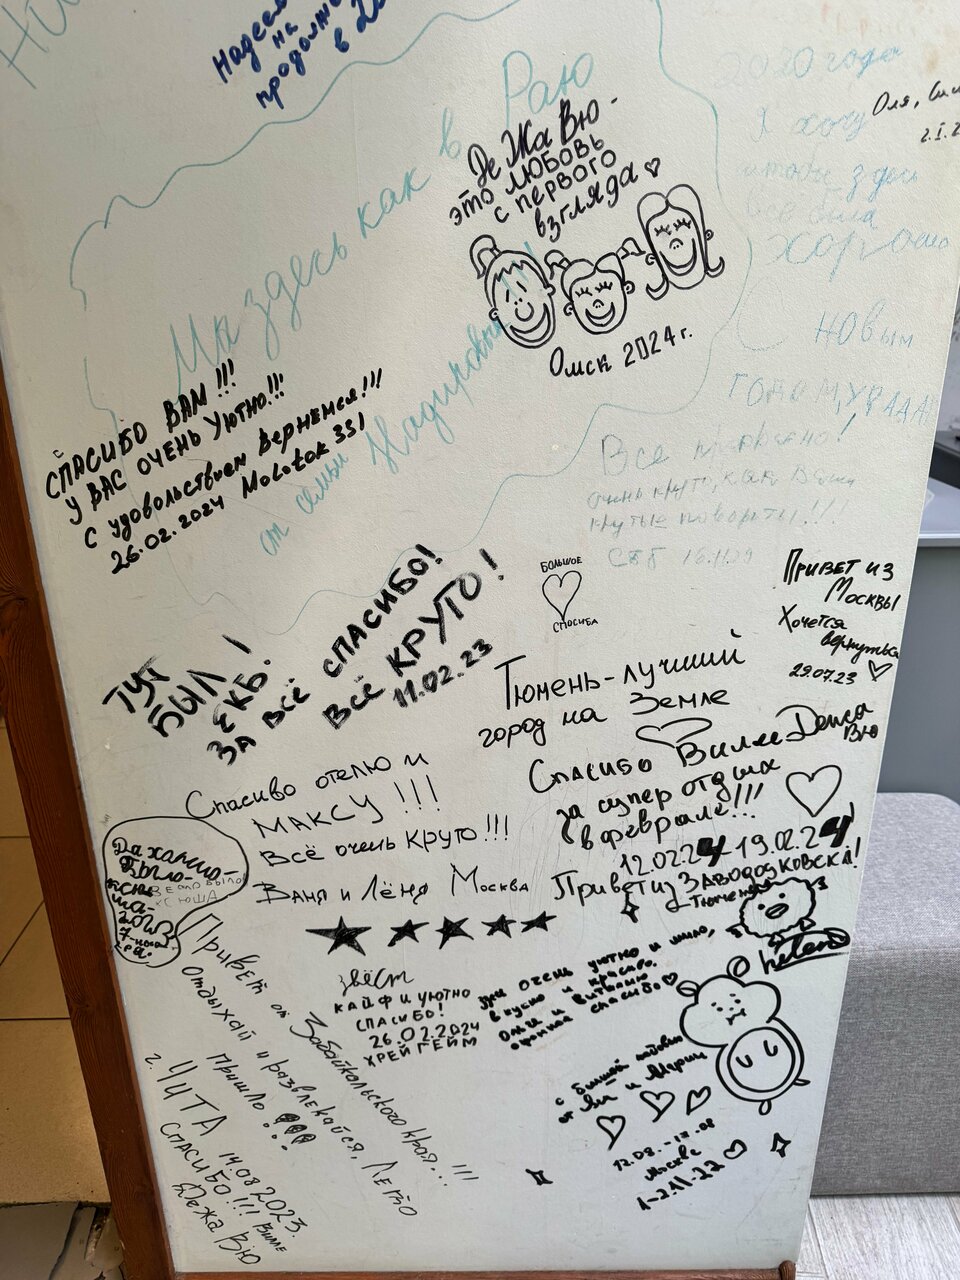 Надеем
на
продолж
в 2
Мы здесь как в Раю
от семьи Надировых
Де Жа Вю -
это любовь
с первого
взгляда
Омск 2024 г.
Оля,
2020 года
Я хочу
чтобы здесь
всё было
хорошо
новым
годом, УРААА
СПАСИБО ВАМ!!!
У ВАС ОЧЕНЬ УЮТНО!!!
С удовольствием вернемся!!!
26.02.2024 Molotok 331
Всё прекрасно!
очень круто, как Ваши
крутые повороты!!!
СПБ 16.11.19
БОЛЬШОЕ
СПОСИБА
Привет из
Москвы
Хочется
вернуться
29.07.23
ТУТ
БЫЛ!
ЕКБ.
ЗА ВСЁ СПАСИБО!
ВСЁ КРУТО!
11.02.23
Тюмень-лучший
город на Земле
Спасибо Вилле Дежа
Вю
за супер отдых
в феврале!!!
12.02.24-19.02.24
Привет из ЗАВОДОУКОВСКА!
Тюменская
Спасиво отелю и
МАКСУ!!!
Всё очень круто!!!
Ваня и Лёня Москва
Да хорошо
было-
Ксю
ша-
2023
КСЮША
5 звёзд
КАЙФ И УЮТНО
СПАСИБО!
26.02.2024
ХРЕЙГЕЙМ
Привет от Забайкальского края..!!!
отдыхай и развлекайся, Лето
пришло!!!
г. ЧИТА 14.08.2023.
СПАСИБО!!! Вилле
Дежа Вю
очень уютно и мило,
вкусно и красиво.
и Виталию
огромное спасибо
helen
с большой любовью
от Яны и Марии
12.08.-17.08
Москва